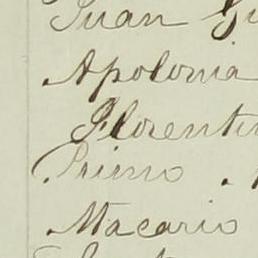 Juan
Apolonia
Florentin
Primo
Macario